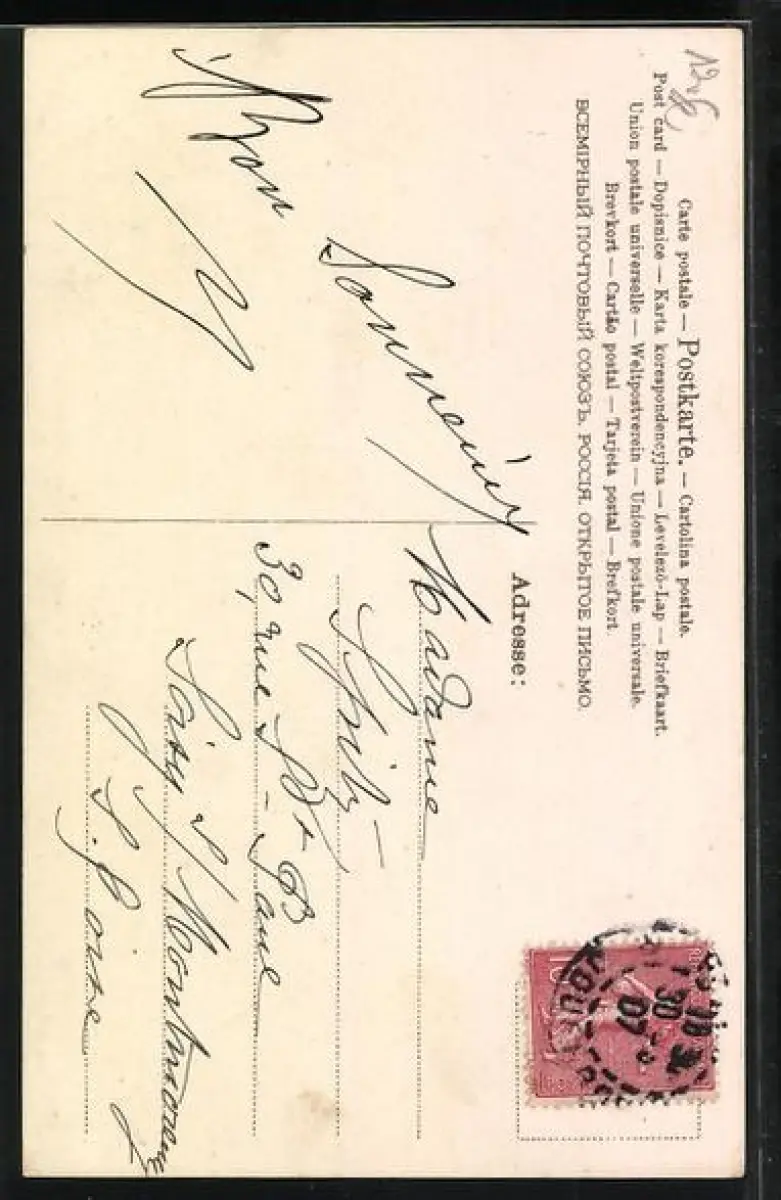 Carte postale — Postkarte. — Cartolina postale.
Post card — Dopisnice — Karta korespondencyjna — Levelező-Lap — Briefkaart.
Union postale universelle — Weltpostverein — Unione postale universale.
Brevkort — Cartão postal — Tarjeta postal — Brefkort
ВСЕМІРНЫЙ ПОЧТОВЫЙ СОЮЗЪ. РОССІЯ. ОТКРЫТОЕ ПИСЬМО.
Adresse:
Mon
Souvenir
Madame
30, rue
Soisy S/ Montmorency
S. Oise
30
07